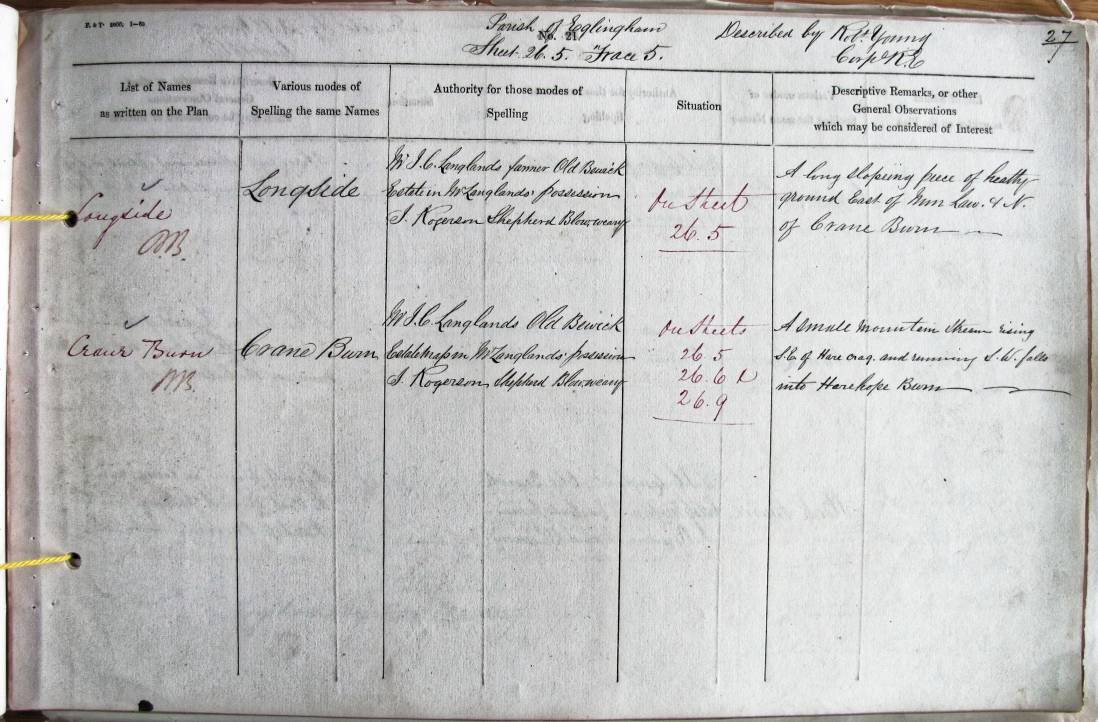 Parish of Eglingham
No. 21
Sheet 26. 5. Trace 5.
Described by Robt. Young
Corpl. R.E.
27
List of Names
as written on the Plan
Various modes of
Spelling the same Names
Authority for those modes of
Spelling
Situation
Descriptive Remarks, or other
General Observations
which may be considered of Interest
Longside
Longside
Mr J. C. Langlands farmer Old Bewick
Estate in Mr Langlands' possession
J. Rogerson Shepherd Blow weary
On Sheet
26. 5
A long sloping piece of heathy
ground East of Nun Law. & N.
of Crane Burn
Crane Burn
Crane Burn
Mr J. C. Langlands Old Bewick
Estate map in Mr Langlands' possession
J. Rogerson Shepherd Blow weary
On Sheets
26. 5
26. 6
26. 9
A small mountain stream rising
S.E. of Hare crag. and running S.W. falls
into Harehope Burn